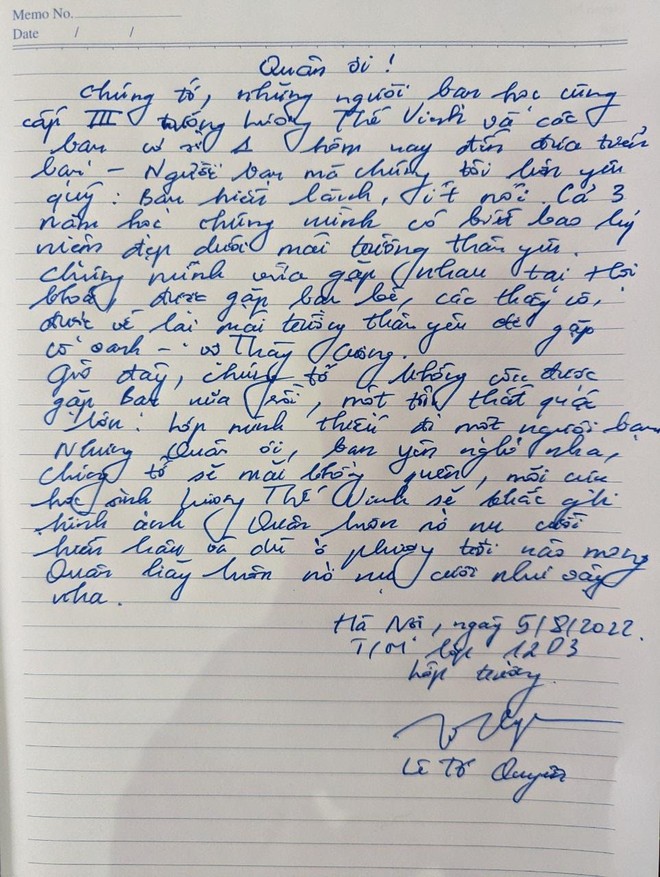 Memo No.
Date / /
Quân ơi!
Chúng tớ, những người bạn học cùng
cấp III trường Lương Thế Vinh và các
bạn cư xá hôm nay đến đưa tiễn
bạn - Người bạn mà chúng tôi luôn yêu
quý: Bạn hiền lành, ít nói. Cả 3
năm học chúng mình có biết bao kỷ
niệm đẹp dưới mái trường thân yêu.
Chúng mình vừa gặp nhau tại Hội
khoá, được gặp bạn bè, các thầy cô,
được về lại mái trường thân yêu để gặp
cô Oanh - Thầy Cương.
Giờ đây, chúng tớ không còn được
gặp bạn nữa rồi, một tổn thất quá
lớn: lớp mình thiếu đi một người bạn
Nhưng Quân ơi, bạn yên nghỉ nha,
Chúng tớ sẽ mãi không quên, mỗi cựu
học sinh Lương Thế Vinh sẽ khắc ghi
hình ảnh Quân luôn nở nụ cười
hiền hậu và dù ở phương trời nào mong
Quân hãy luôn nở nụ cười như vậy
nha.
Hà Nội, ngày 5/8/2022
T/M lớp 12D3
lớp trưởng
Lê Tố Quyên